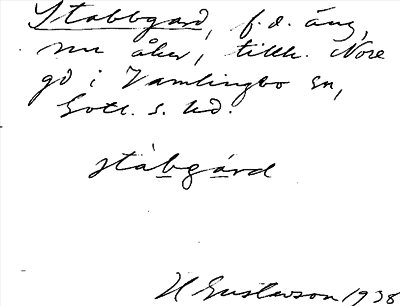 Stabbgard, f.d. äng,
nu åker, tillh. Nore
gd i Vamlingbo sn,
Gotl. s. hd.
stábgárd
H Gustavson 1938